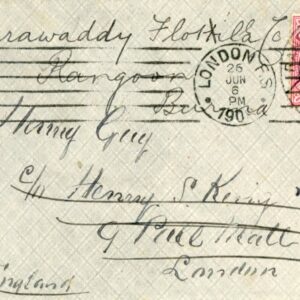 rrawaddy Flotilla Co
Rangoon
Burma
LONDON F.S.
26
JUN
6
PM
190
Henry Guy
c/o Henry S. King
9 Pall Mall
London
England